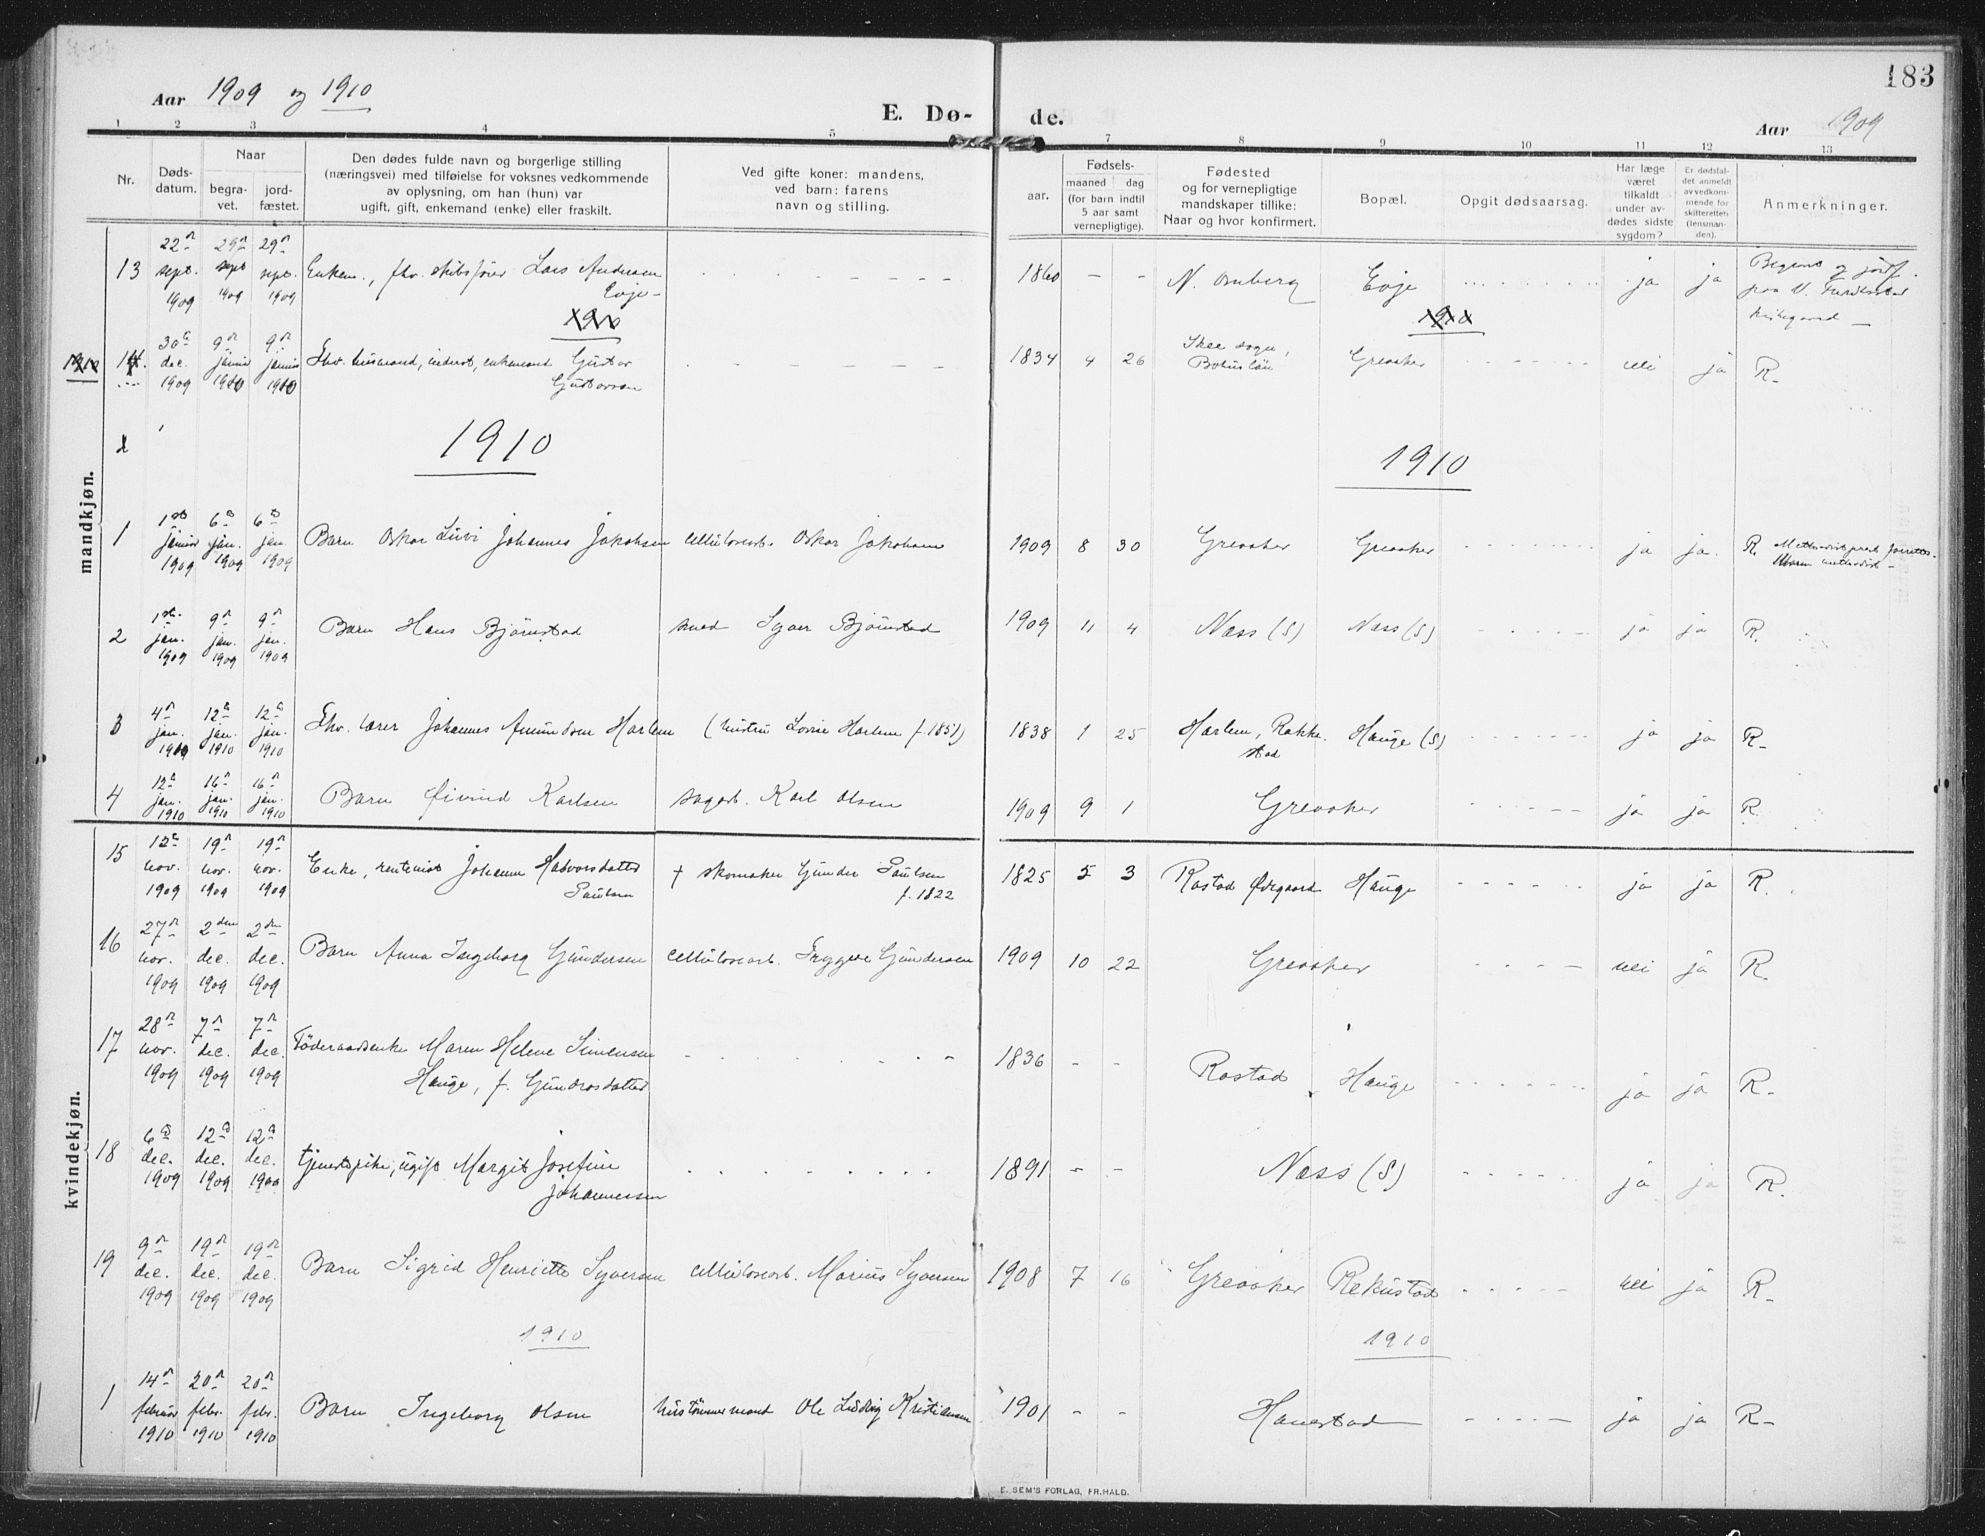 183
Aar 1909 og 1910
E. Dø-
de.
Aar 1909
1 2 3 4 5 7 8 9 10 11 12 13
Nr.
Døds-
datum.
Naar
begra-
vet.
jord-
fæstet.
Den dødes fulde navn og borgerlige stilling
(næringsvei) med tilføielse for voksnes vedkommende
av oplysning, om han (hun) var
ugift, gift, enkemand (enke) eller fraskilt.
Ved gifte koner: mandens,
ved barn: farens
navn og stilling.
aar.
Fødsels-
maaned dag
(for barn indtil
5 aar samt
vernepligtige).
Fødested
og for vernepligtige
mandskaper tillike:
Naar og hvor konfirmert.
Bopæl.
Opgit dødsaarsag.
Har læge
været
tilkaldt
under av-
dødes sidste
sygdom?
Er dødsfal-
det anmeldt
av vedkom-
mende for
skifteretten
(lensman-
den).
Anmerkninger.
mandkjøn.
13 22 sept. 1909 29 sept 1909 29 sept. 1909 Enkem., fhv. skibsfører Lars Andersen
Evje
1860 - - N. Omberg Evje ja ja
1910 1910
14. 30 dec. 1909 9 januar 1910 9 januar 1910 Fhv. husmand, inderst, enkemand Gustav
Gustavson
1834 4 26 Skee sogn,
Bohuslän Greaaker nei ja R.
1910 1910
1 1ste januar 1909 6 jan. 1909 6 jan. 1909 Barn Oskar Livi Johannes Jakobsen cellulosearb. Oskar Jakobsen 1909 8 30 Greaaker Greaaker ja ja. R.
2 1ste jan. 1909 9 jan. 1909 9 jan. 1909 Barn Hans Bjørnstad smed Syver Bjørnstad 1909 11 4 Næss (S) Næss (S) ja ja R.
3 4 jan. 1910 12 jan. 1910 12 jan. 1910 Fhv. lærer Johannes Amundsen Harlem (hustru Lovise Harlem f. 1851) 1838 1 25 Harlem, Rakke-
stad Hauge (S) ja ja R.
4 12 jan. 1910 16 jan. 1910 16 jan. 1910 Barn Øivind Karlsen sagarb. Karl Olsen 1909 9 1 Greaaker ja ja R.
kvindekjøn.
15 12 nov. 1909 19 nov. 1909 19 nov. 1909 Enke, rentenist Johanne Halvorsdatter
Paulsen † skomaker Gunder Paulsen
f. 1822 1825 5 3 Rostad Ødegaard Hauge ja ja R.
16 27 nov. 1909 2den dec. 1909 2den dec. 1909 Barn Anna Ingeborg Gundersen cellulosearb. Trygve Gundersen 1909 10 22 Greaaker nei ja R.
17 28 nov. 1909 7 dec. 1909 7 dec. 1909 Føderaadsenke Maren Helene Simensen
Hauge, f. Gundersdatter 1836 - - Rostad Hauge ja ja R.
18 6 dec. 1909 12 dec. 1909 12 dec. 1909 tjenestpike, ugift Margit Josefine
Johannesen 1891 - - Næss (S) ja ja R.
19 9 dec. 1909 19 dec. 1909 19 dec. 1909 Barn Sigrid Henriette Syversen cellulosearb. Marius Syversen 1908 7 16 Greaaker Rekustad nei ja R.
1910 1910
1 14 februar 1910 20 febr. 1910 20 febr. 1910 Barn Ingeborg Olsen hustømmermand Ole Ludvig Kristiansen 1901 - - Hanestad ja ja R.
E. SEM'S FORLAG, FR.HALD.